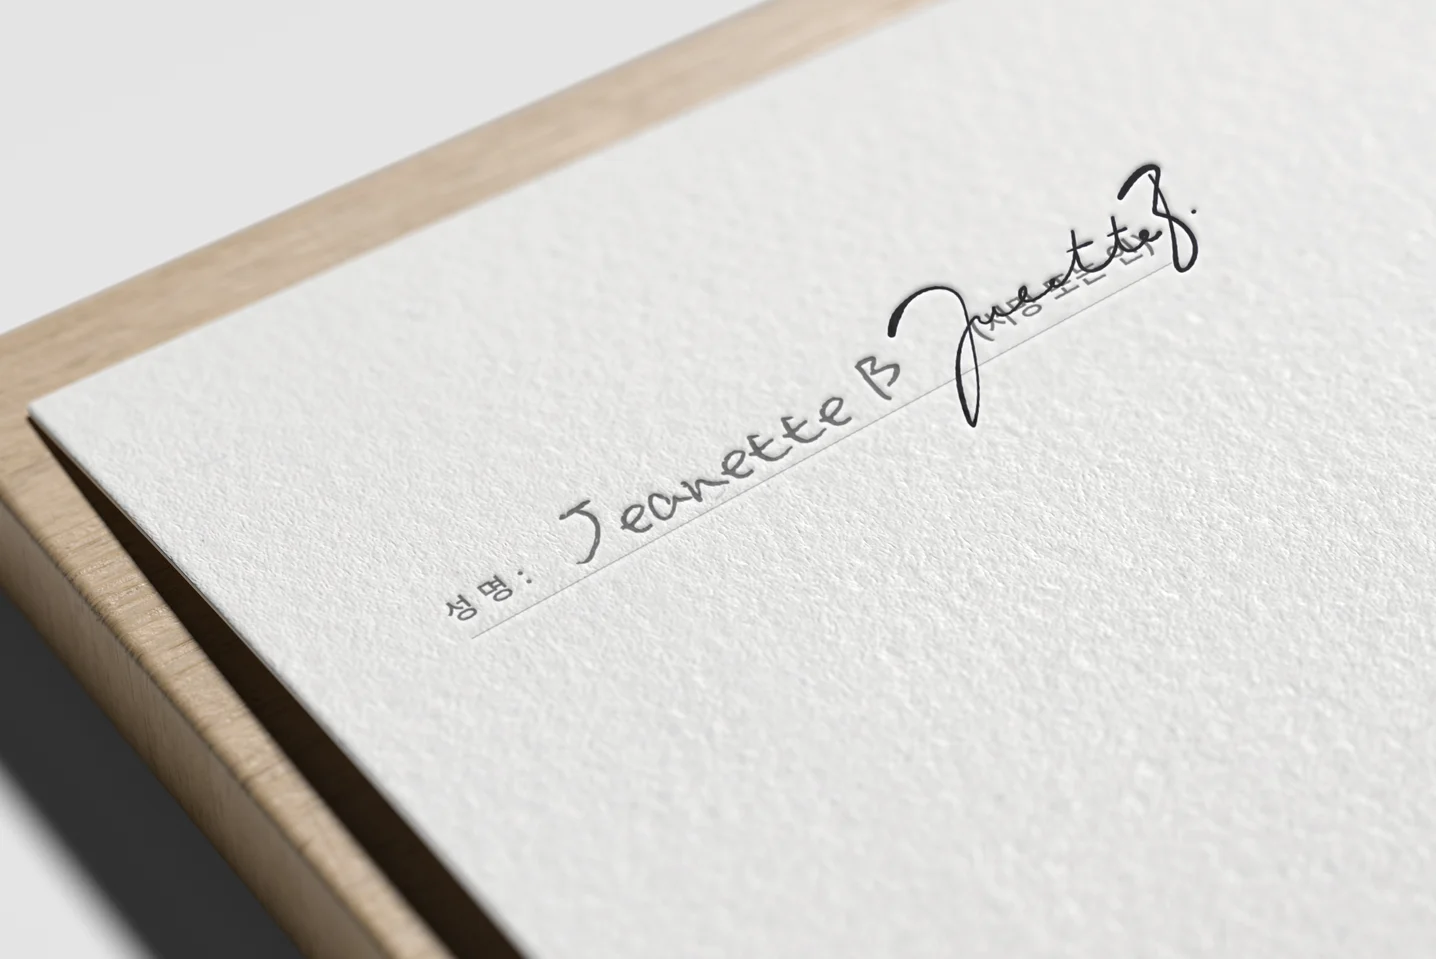 성명: Jeanette B (서명 또는 인) Jeanette B.